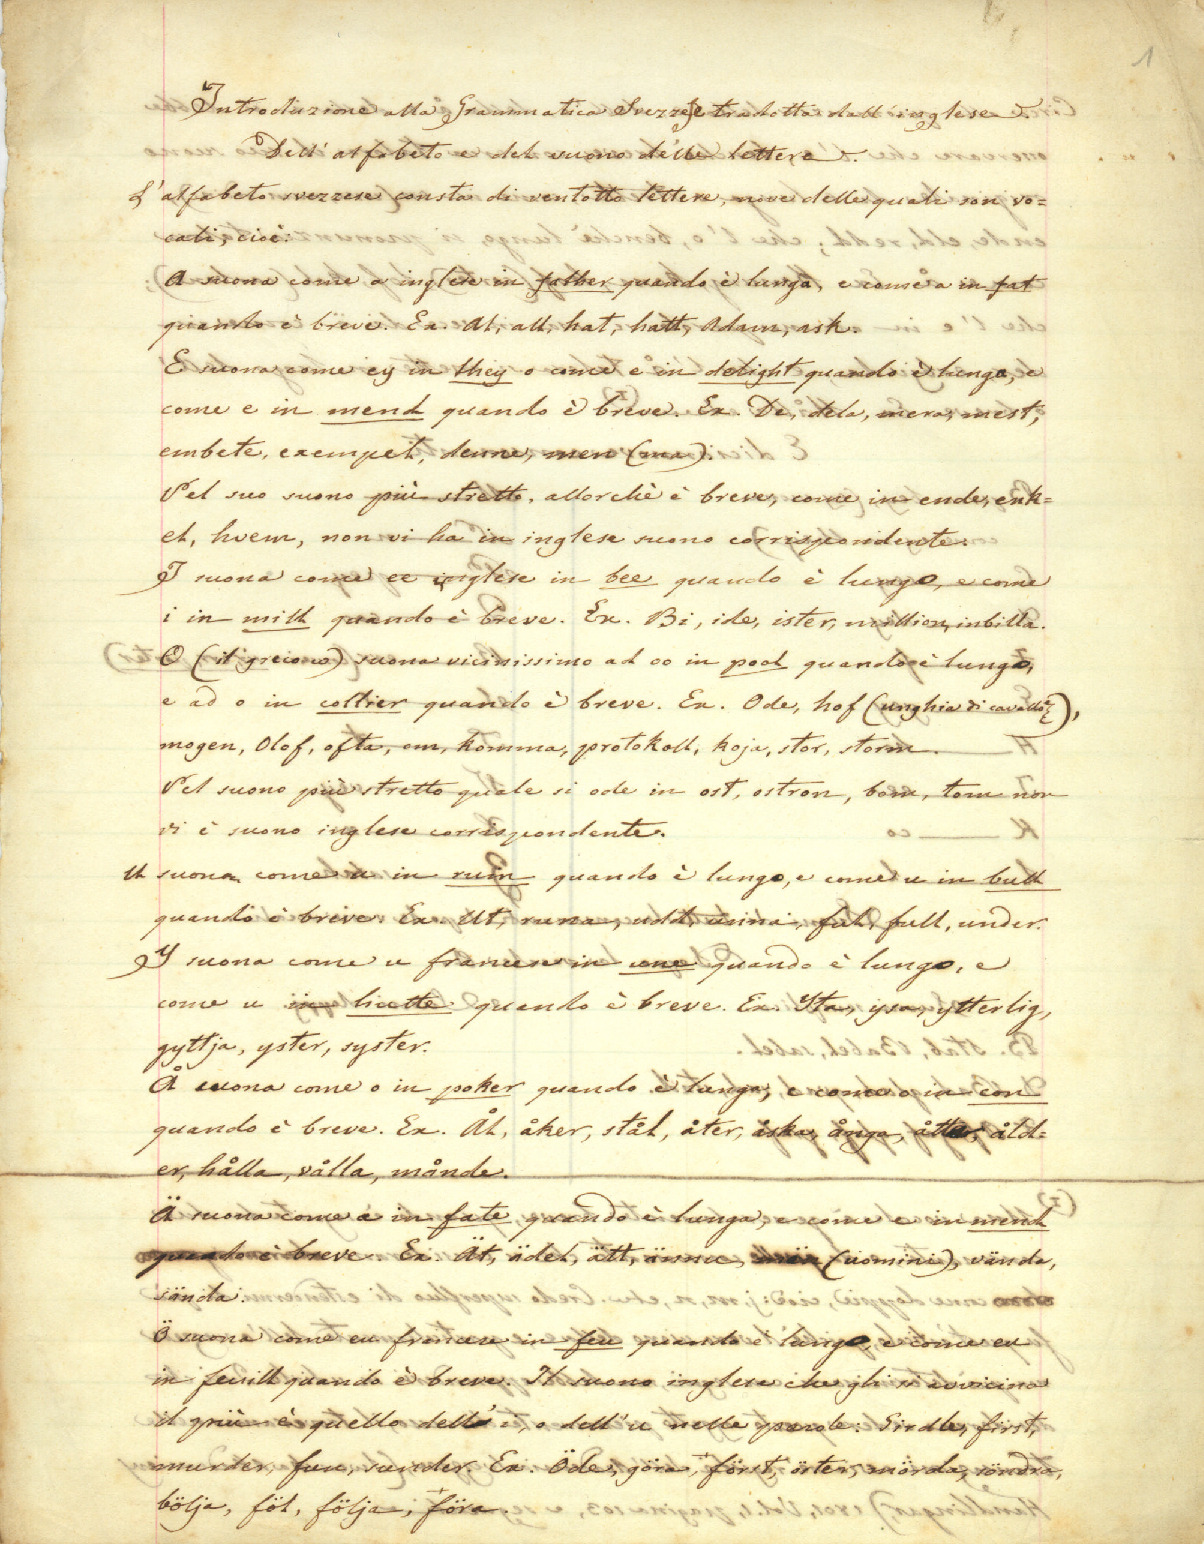 1
Introduzione alla Grammatica Svezzese tradotta dall'inglese.
Dell'alfabeto e del suono delle lettere.
L'alfabeto svezzese consta di ventotto lettere, nove delle quali son vo=
cali, cioè:
A suona come a inglese in father quando è lunga, e come a in fat
quando è breve. Ex. Al, all, hat, hatt, Adam, ask.
E suona come ey in they o come e in delight quando è lunga, e
come e in mend quando è breve. Ex. De, dela, mera, mest,
embete, exempel, denne, men (ma).
Nel suo suono più stretto, allorchè è breve, come in ende, enk=
el, hvem, non vi ha in inglese suono corrispondente.
I suona come ee inglese in bee quando è lungo, e come
i in milk quando è breve. Ex. Bi, ide, ister, million, inbilla.
O (il greco) suona vicinissimo ad oo in pool quando è lungo,
e ad o in collier quando è breve. Ex. Ode, hof (unghia di cavallo),
mogen, Olof, ofta, om, komma, protokoll, koja, stor, storm.
Nel suono più stretto quale si ode in ost, ostron, bom, tom non
vi è suono inglese corrispondente.
U suona come u in ruin quando è lungo, e come u in bull
quando è breve. Ex. Ut, runa, udd, unna, ful, full, under.
Y suona come u francese in une quando è lungo, e
come u in lutte quando è breve. Ex. Yta, ysa, ytterlig,
gyttja, yster, syster.
Å suona come o in poker quando è lungo, e come o in con
quando è breve. Ex. Ål, åker, stål, åter, åska, ånga, åtta, åld=
er, hålla, vålla, månde.
Ä suona come a in fate quando è lunga, e come e in mend
quando è breve. Ex. Ät, ädel, ätt, ännu, män (uomini), vända,
sända.
Ö suona come eu francese in feu quando è lungo, e come eu
in feuill quando è breve. Il suono inglese che gli si avvicina
il più è quello dell'i, o dell'u nelle parole: Girdle, first,
murder, fur, surder. Ex. Öde, göra, först, öster, mörda, söndra,
bölja, föl, följa, föra.